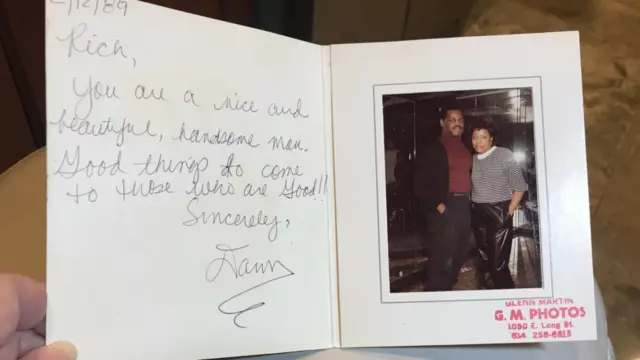 2/12/89
Rich,
You are a nice and
beautiful, handsome man.
Good things do come
to those who are Good!!
Sincerely,
Dawn
GLENN MARTIN
G. M. PHOTOS
1090 E. Long St.
614 258-8813